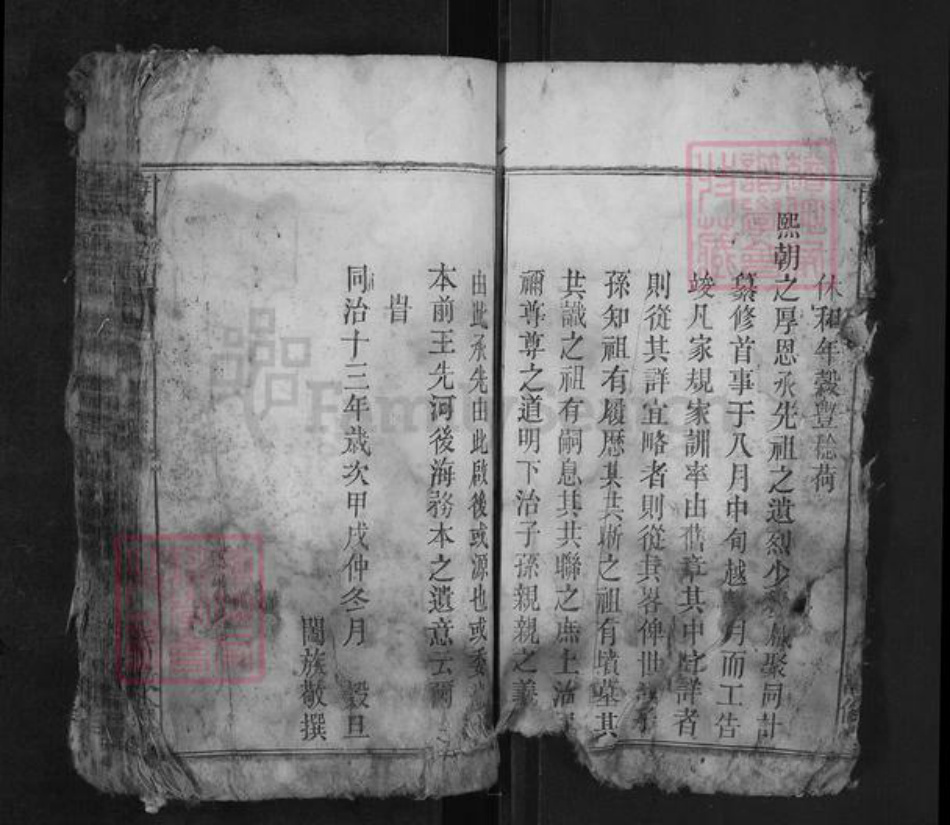 休和年穀豐稔荷
熙朝之厚恩承先祖之遺烈少聚同計
纂修首事于八月中旬越月而工告
竣凡家規家訓率由舊章其中宜詳者
則從其詳宜略者則從其畧俾世孫
孫知祖有履歷其共之祖有墳墓其
共識之祖有嗣息其共聯之庶上治
禰尊尊之道明下治子孫親親之義
由此承先由此啟後或源也或委
本前王先河後海務本之遺意云爾
旹
同治十三年歲次甲戌仲冬月 穀旦
闔族敬撰